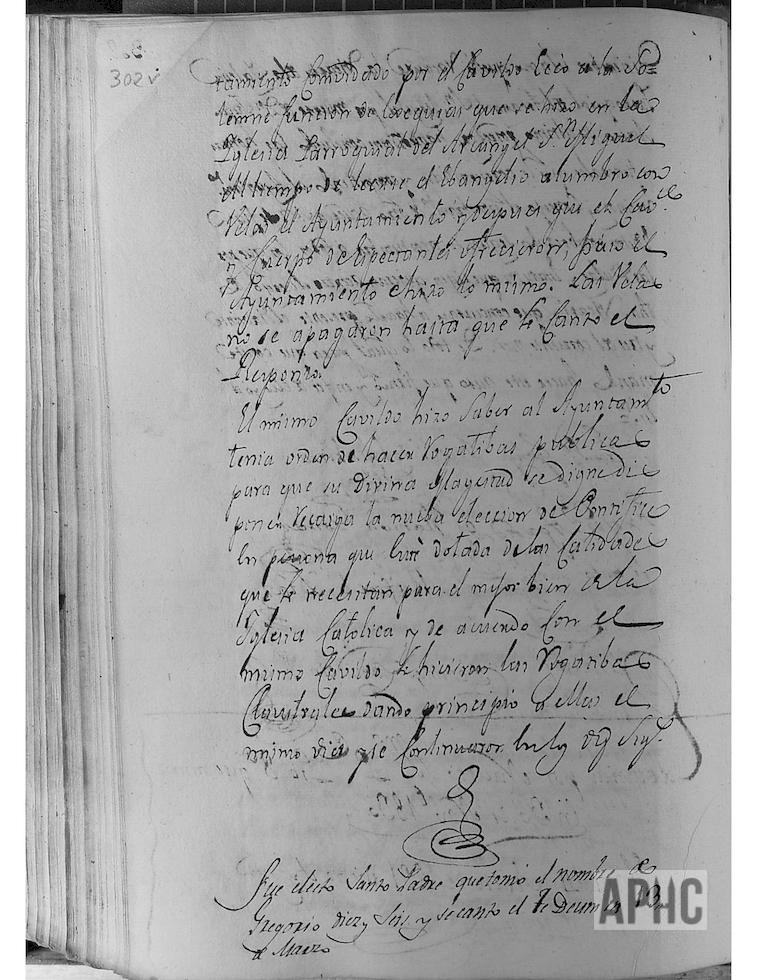 302v
tamiento Combidado por el Cavildo Ecco a la So=
lemne funcion de Exequias que se hizo en la
Yglesia Parroquial del Arcangel Sn Miguel
Al tiempo de decirse el Ebangelio alumbro con
Velas el Ayuntamiento y despues que el Cavo
y Cuerpo de Espectantes ofrecieron, paso el
Ayuntamiento e hizo lo mismo. Las Velas
no se apagaron hasta que se Canto el
Responso.
El mismo Cavildo hizo saber al Ayuntamto
tenia orden de hacer Rogatibas publicas
para que su Divina Magestad se digne dis
poner recaiga la nueba eleccion de Pontifice
en persona que esté dotada de las Calidades
que se necesitan para el mejor bien de la
Yglesia Catolica y de acuerdo con el
mismo Cavildo se hicieron las Rogatibas
Claustrales dando principio a ellas el
mismo dia y se Continuaron en los dias sigs.
Fue electo Santo Padre que tomó el nombre de
Gregorio diez y seis, y se canto el Te Deum en 13
de Marzo
APHC